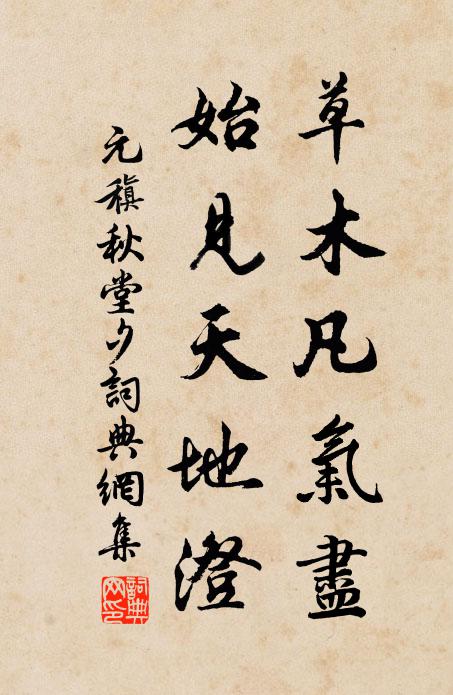 草木凡氣盡
始見天地澄
元稹秋堂夕詞典網集
詞典網印